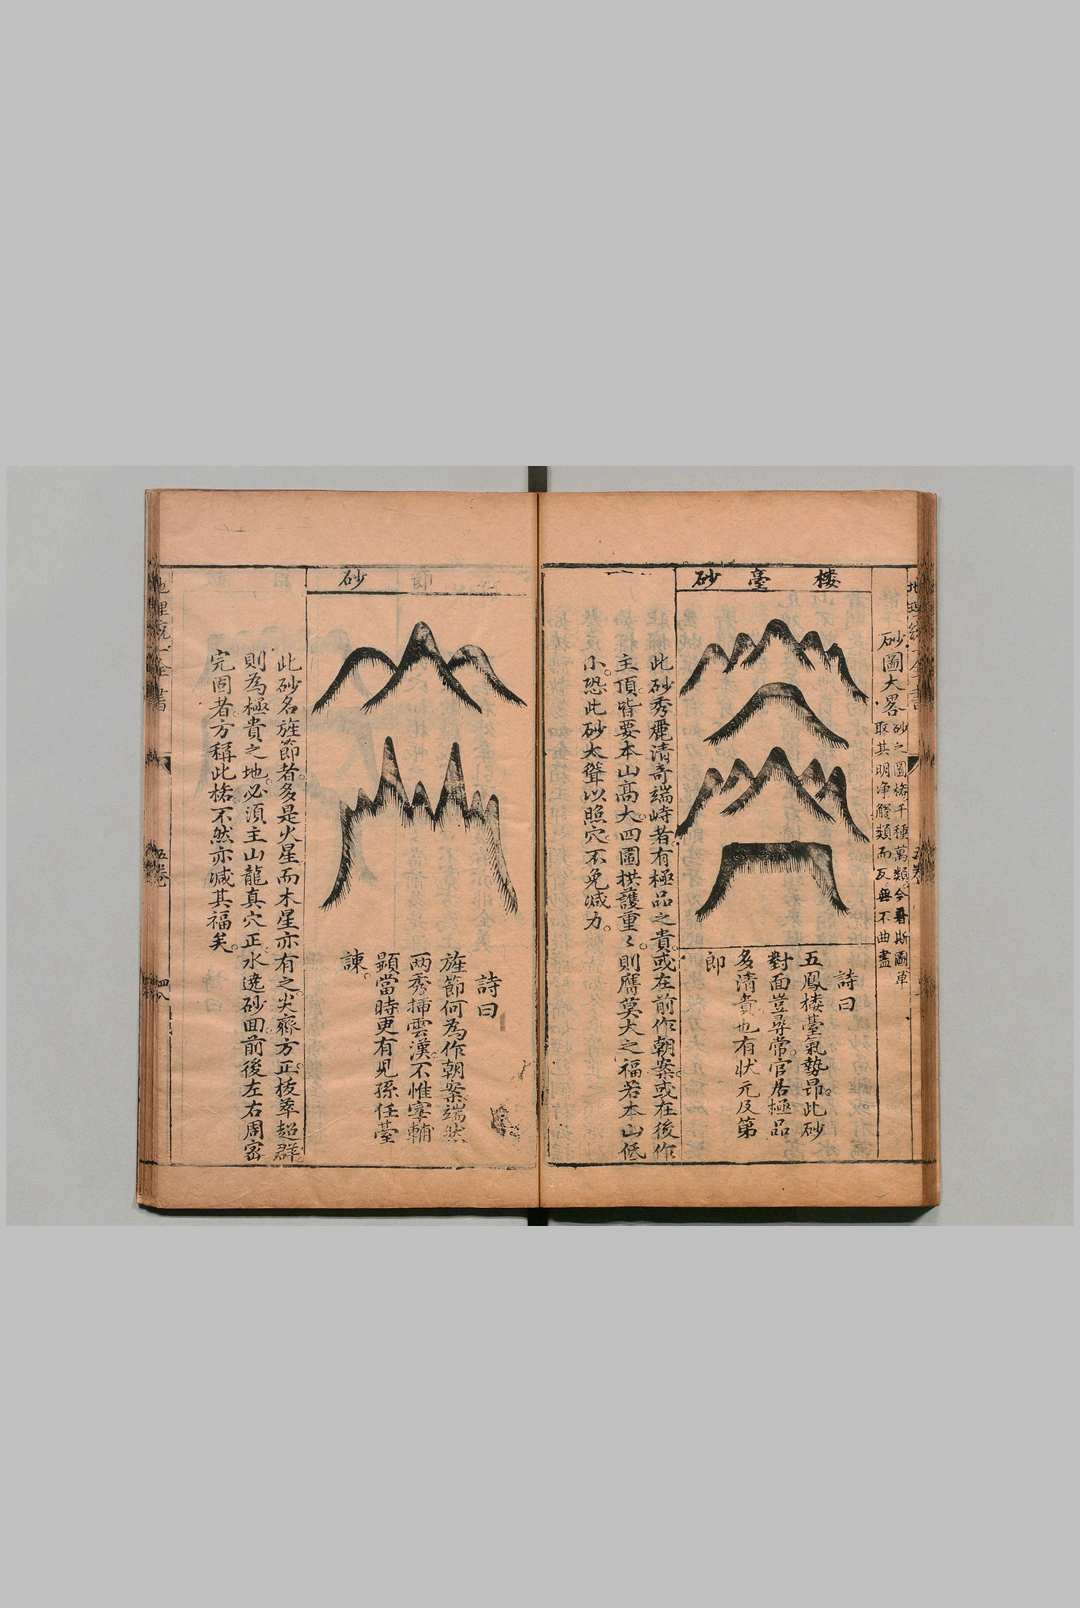 砂圖大畧
砂之圖
取其明净
種萬類今
類而
無不曲盡
樓臺砂
詩曰
五鳳樓臺氣勢昂此砂
對面豈尋常官居極品
多清貴也有狀元及第
郎
此砂秀麗清奇端峙者有極品之貴或在前作朝案或在後作
主頂皆要本山高大四圍拱護重〻則膺莫大之福若本山低
小恐此砂太聳以照穴不免減力
砂
詩曰
旌節何為作朝案端然
两秀揷雲漢不惟宰輔
顯當時更有兒孫任臺
諫
此砂名旌節者多是火星而木星亦有之尖齊方正拔萃超群
則為極貴之地必須主山龍真穴正水遶砂囬前後左右周密
完固者方稱此格不然亦減其福矣
全書
五卷